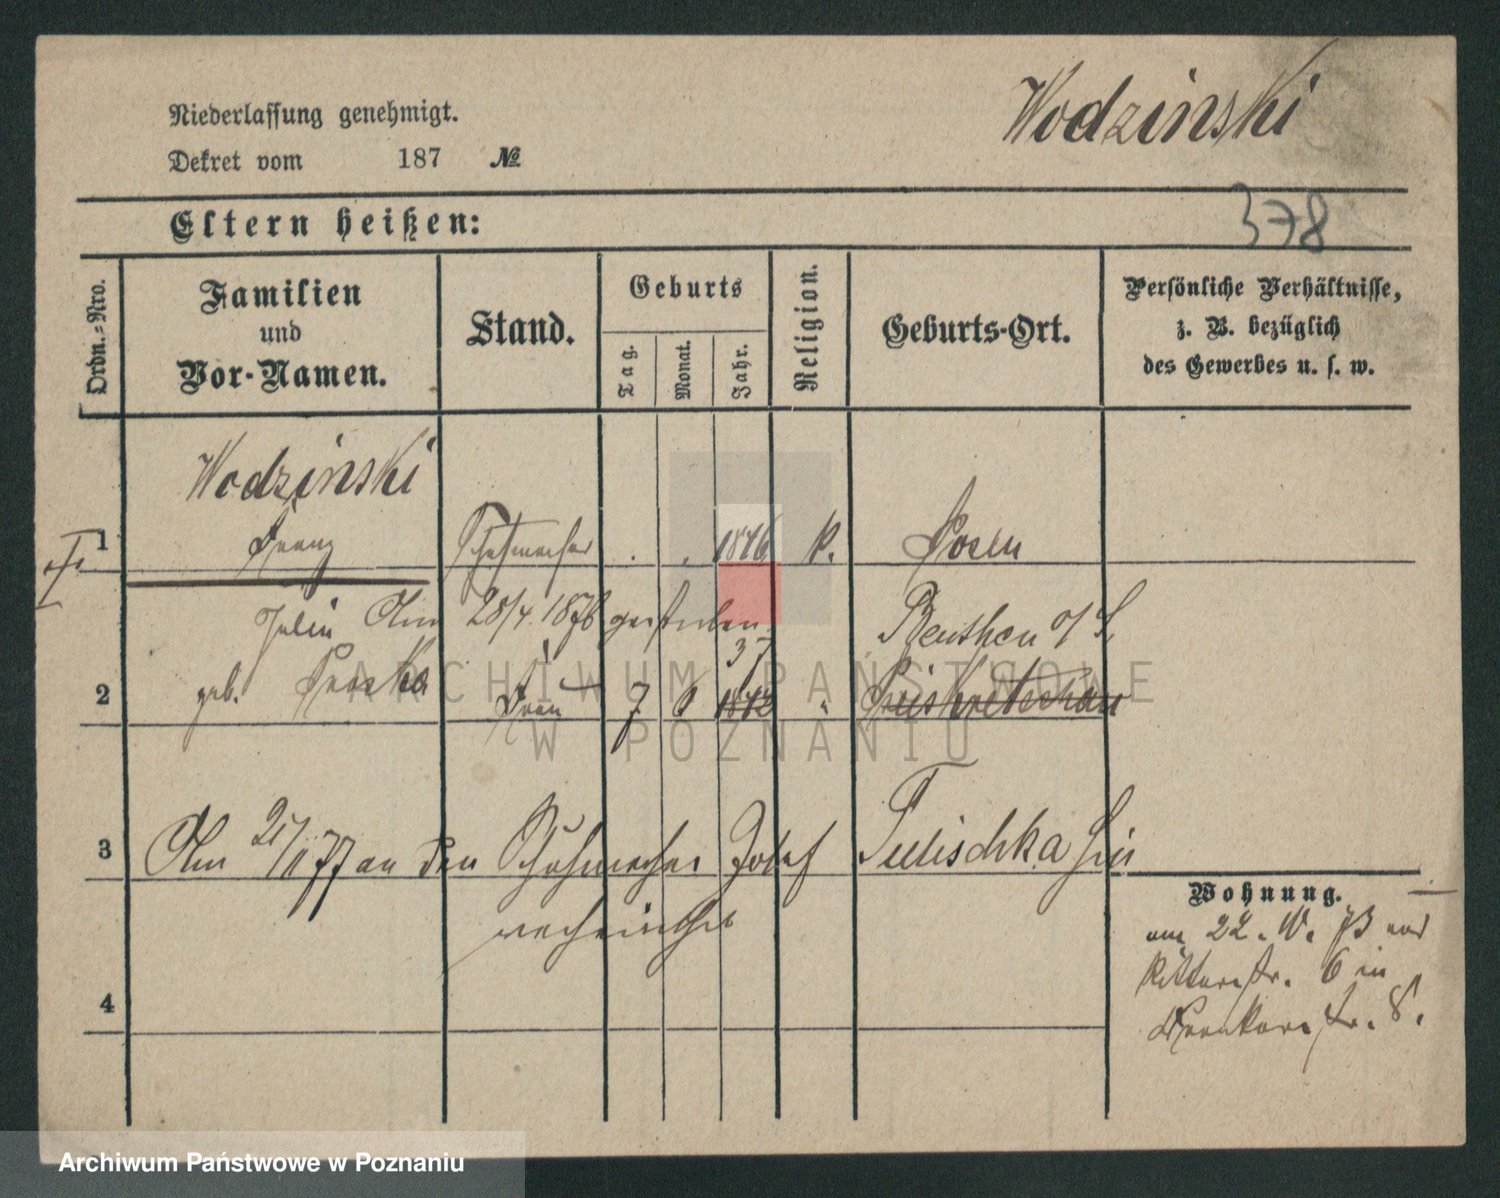 Niederlassung genehmigt.
Dekret vom 187 №
Wodzinski
378
Eltern heißen:
Ordn.=Nro.
Familien
und
Vor-Namen.
Stand.
Geburts
Tag.
Monat.
Jahr.
Religion.
Geburts-Ort.
Persönliche Verhältnisse,
z. B. bezüglich
des Gewerbes u. s. w.
Wodzinski
1 Franz Schuhmacher 1846 k. Posen
Julia Am 28/4. 1876 gestorben
37
Beuthen o/S.
2 geb. Frau 7 6 1842
3 Am 21/11 77 an den Schuhmacher Josef Tulischka hier
verheirathet
4
Wohnung.
am 22. IV. 73 von
Ritterstr. 6 in
Wronkerstr. 8.
ARCHIWUM PAŃSTWOWE
W POZNANIU
Archiwum Państwowe w Poznaniu